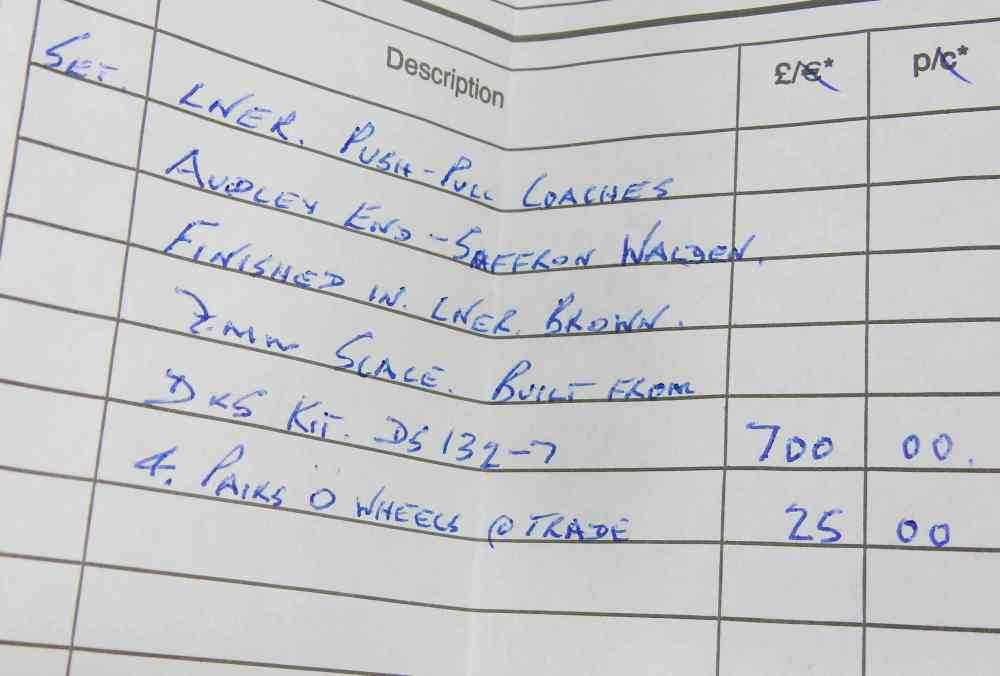 Description £/€* p/¢*
SET. LNER. PUSH-PULL COACHES
AUDLEY END - SAFFRON WALDEN.
FINISHED IN. LNER. BROWN.
7mm SCALE. BUILT FROM
D&S KIT. DS 132-7 700 00.
4. PAIRS O WHEELS @ TRADE 25 00